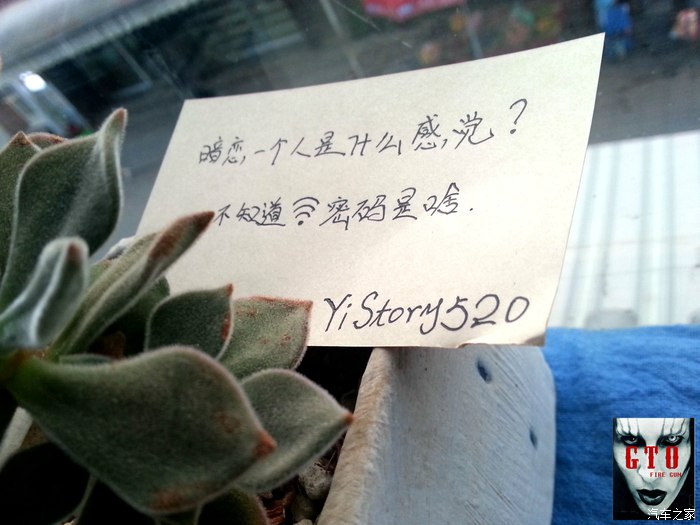 暗恋一个人是什么感觉？
不知道密码是啥.
YiStory520
GTO
FIRE GUN
汽车之家